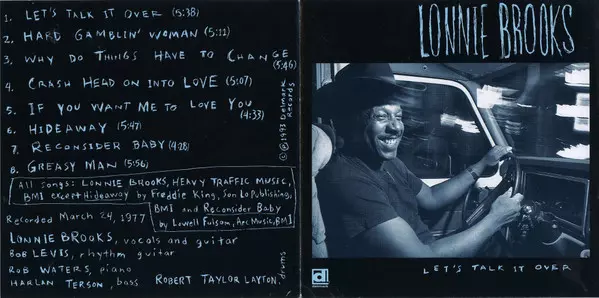 1. LET'S TALK IT OVER (5:38)
2. HARD GAMBLIN' WOMAN (5:11)
3. WHY DO THINGS HAVE TO CHANGE (5:46)
4. CRASH HEAD ON INTO LOVE (5:07)
5. IF YOU WANT ME TO LOVE YOU (4:33)
6. HIDEAWAY (5:47)
7. RECONSIDER BABY (4:28)
8. GREASY MAN (5:56)
© ℗ 1993 Delmark Records
All songs: LONNIE BROOKS, HEAVY TRAFFIC MUSIC,
BMI except Hideaway by Freddie King, Son Lo Publishing,
BMI and Reconsider Baby
by Lowell Fulsom, Arc Music, BMI
Recorded March 24, 1977
LONNIE BROOKS, vocals and guitar
BOB LEVIS, rhythm guitar
ROB WATERS, piano
HARLAN TERSON, bass
ROBERT TAYLOR LAYTON, drums
LONNIE BROOKS
d
LET'S TALK IT OVER